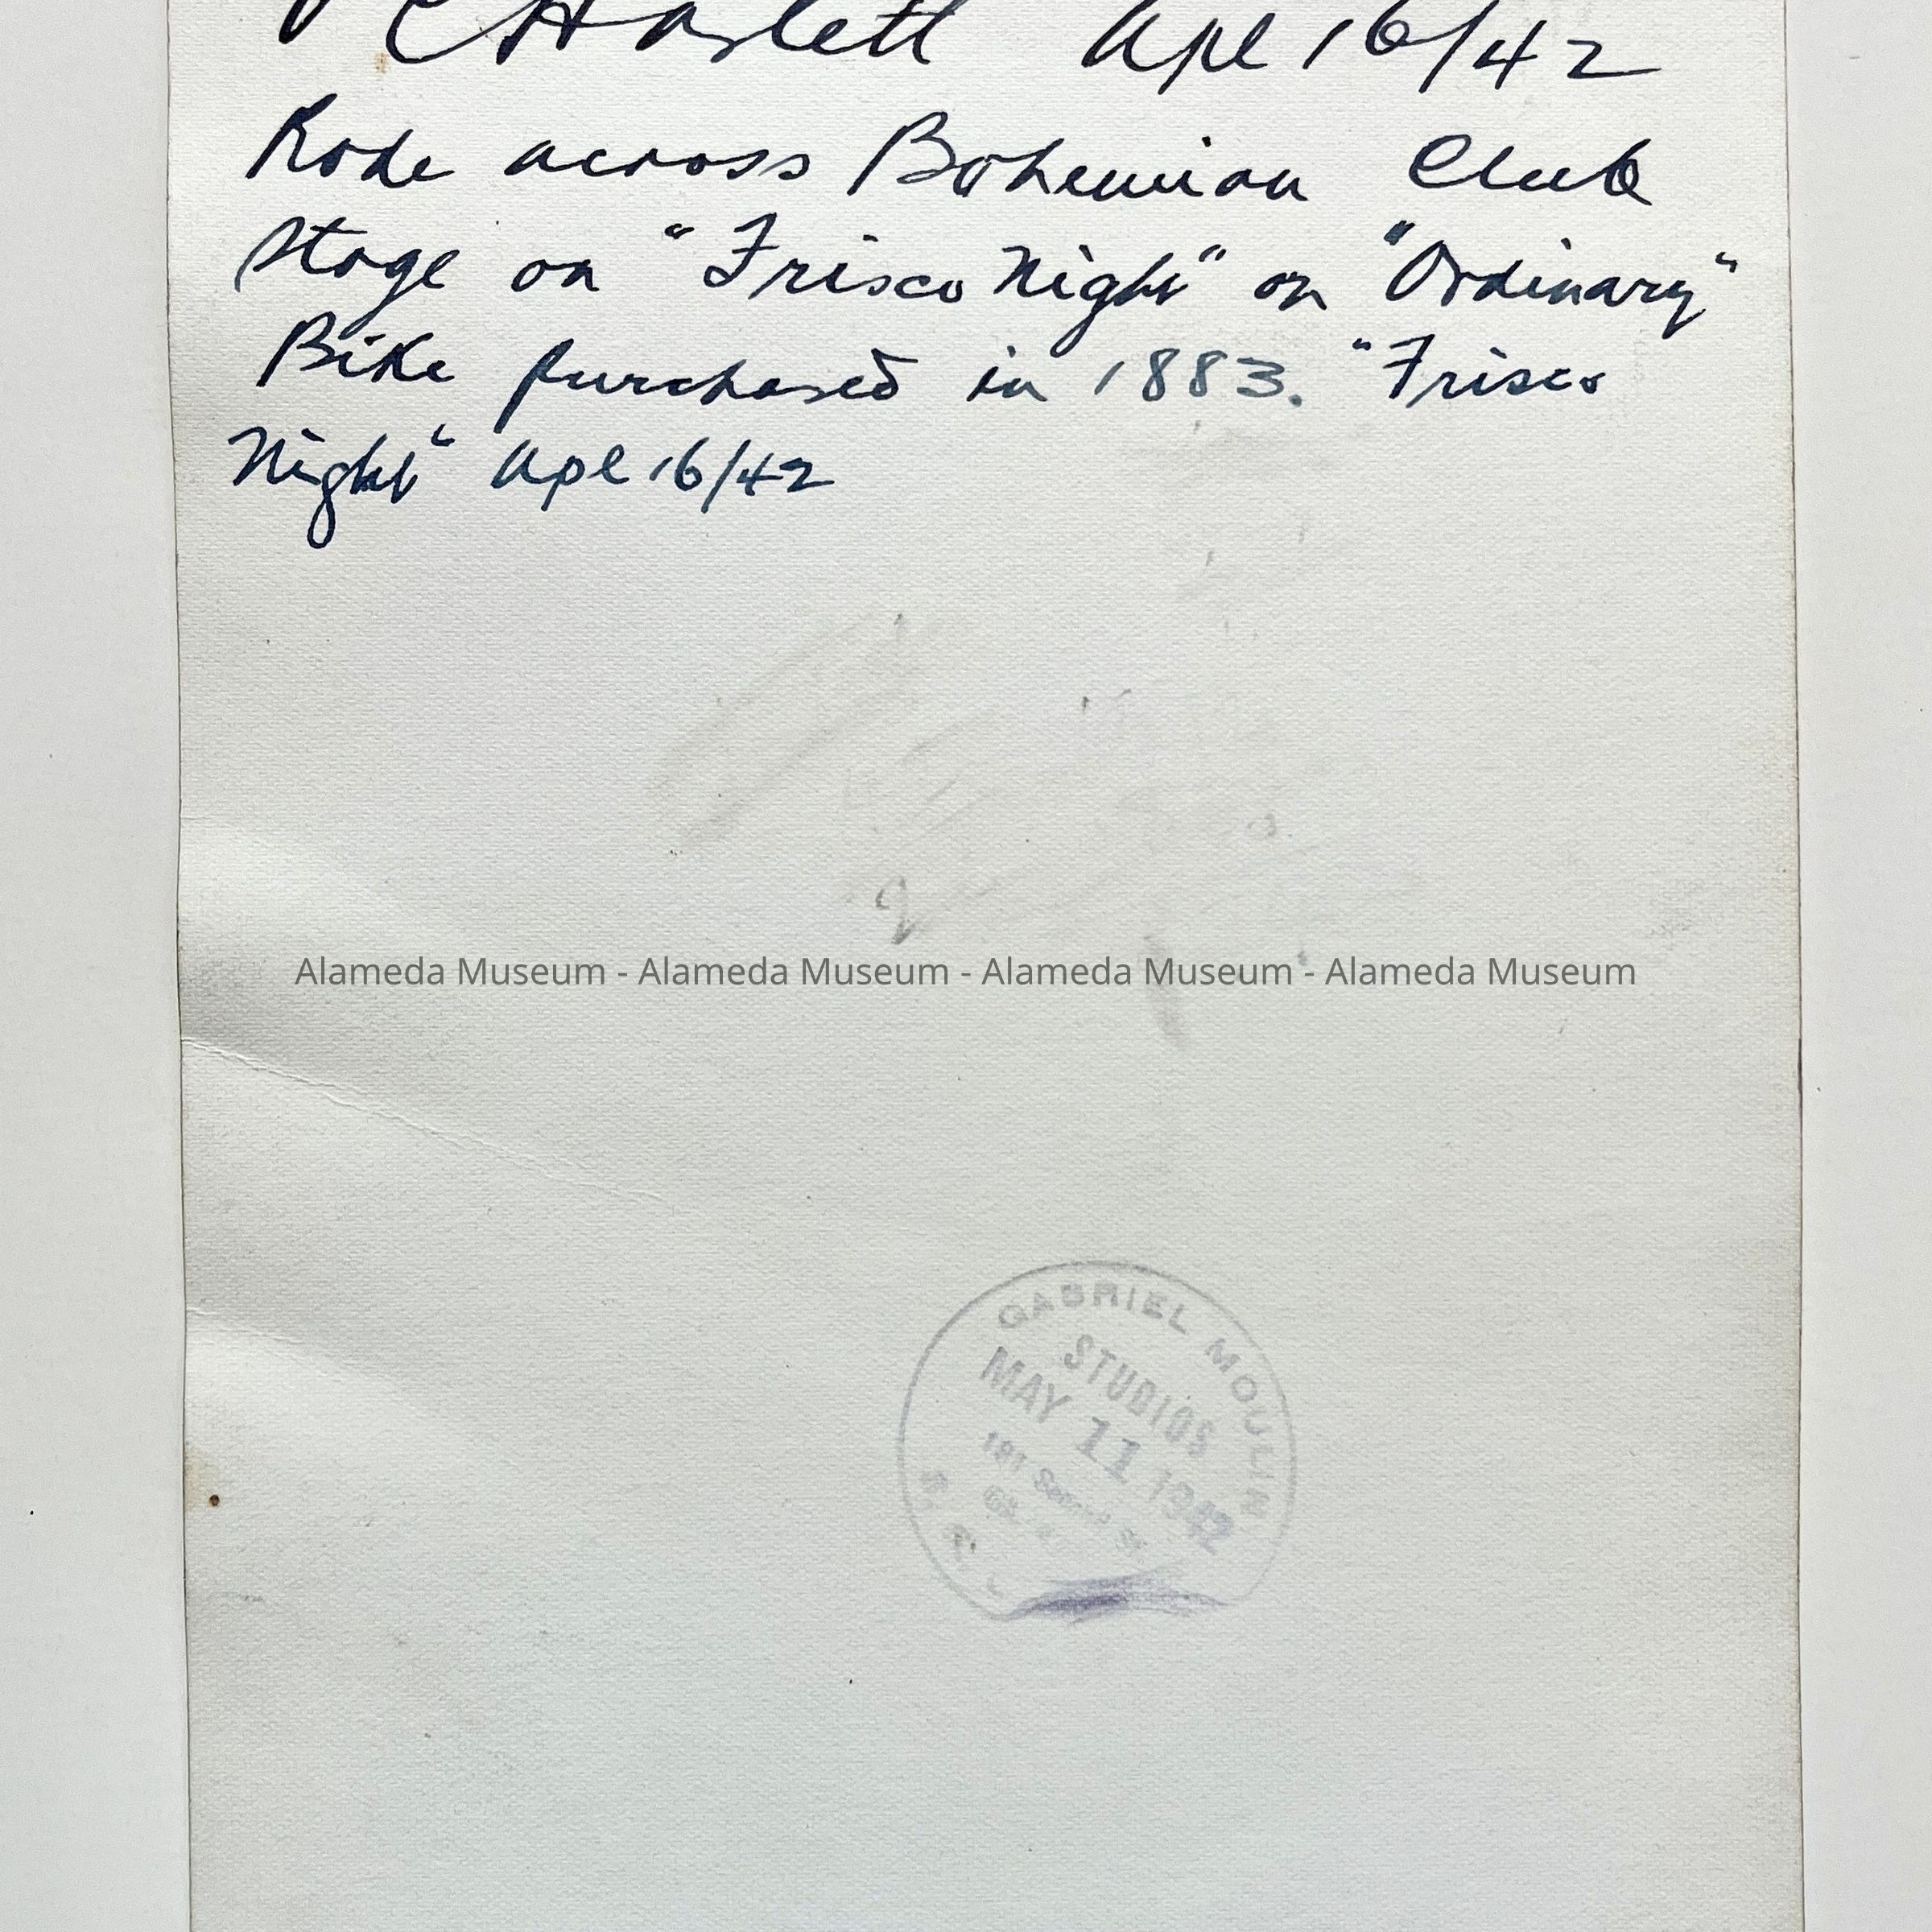 Haslett Apl 16/42
Rode across Bohemian Club
Stage on "Frisco Night" on "Ordinary"
Bike purchased in 1883. "Frisco
Night" Apl 16/42
Alameda Museum - Alameda Museum - Alameda Museum - Alameda Museum
GABRIEL MOULIN
STUDIOS
MAY 11 1942
181
S. F.